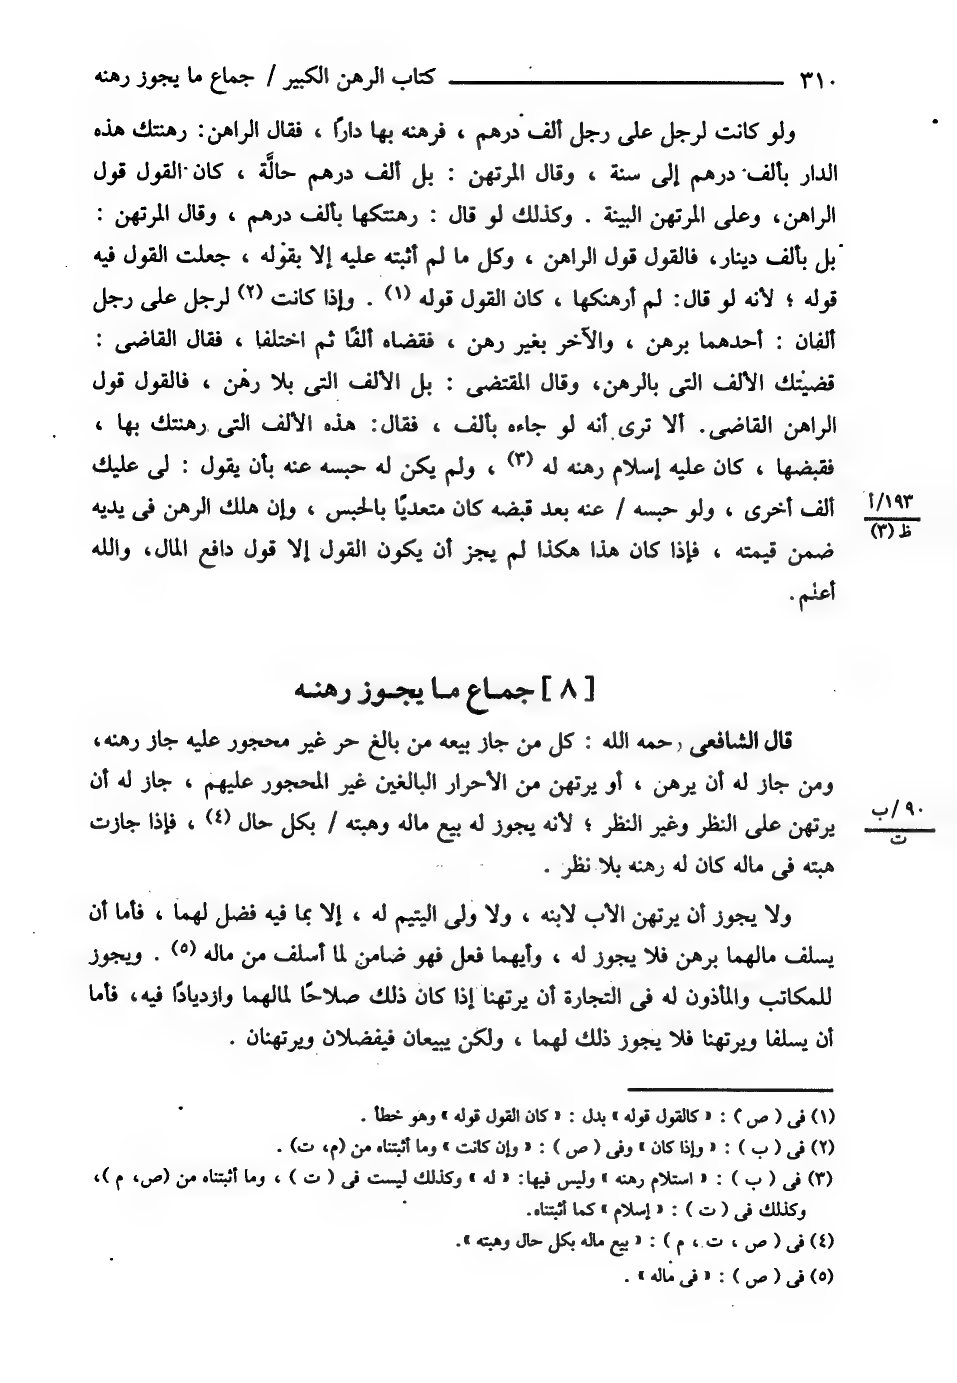 ٣١٠ ــــــــــــــــــــــــــــــــ كتاب الرهن الكبير / جماع ما يجوز رهنه
ولو كانت لرجل على رجل ألف درهم ، فرهنه بها دارًا ، فقال الراهن : رهنتك هذه
الدار بألف درهم إلى سنة ، وقال المرتهن : بل ألف درهم حالَّة ، كان القول قول
الراهن، وعلى المرتهن البينة . وكذلك لو قال : رهنتكها بألف درهم ، وقال المرتهن :
بل بألف دينار، فالقول قول الراهن ، وكل ما لم أثبته عليه إلا بقوله ، جعلت القول فيه
قوله ؛ لأنه لو قال: لم أرهنكها ، كان القول قوله (١) . وإذا كانت (٢) لرجل على رجل
ألفان : أحدهما برهن ، والآخر بغير رهن ، فقضاه ألفًا ثم اختلفا ، فقال القاضى :
قضيتك الألف التى بالرهن، وقال المقتضى : بل الألف التى بلا رهن ، فالقول قول
الراهن القاضى. ألا ترى أنه لو جاءه بألف ، فقال: هذه الألف التى رهنتك بها ،
فقبضها ، كان عليه إسلام رهنه له (٣) ، ولم يكن له حبسه عنه بأن يقول : لى عليك
ألف أخرى ، ولو حبسه / عنه بعد قبضه كان متعديًا بالحبس ، وإن هلك الرهن فى يديه
١٩٣/أ
ظ (٣)
ضمن قيمته ، فإذا كان هذا هكذا لم يجز أن يكون القول إلا قول دافع المال، والله
أعلم.
[ ٨ ] جماع ما يجوز رهنه
قال الشافعى رحمه الله : كل من جاز بيعه من بالغ حر غير محجور عليه جاز رهنه،
ومن جاز له أن يرهن ، أو يرتهن من الأحرار البالغين غير المحجور عليهم ، جاز له أن
يرتهن على النظر وغير النظر ؛ لأنه يجوز له بيع ماله وهبته / بكل حال (٤) ، فإذا جازت
٩٠/ب
ت
هبته فى ماله كان له رهنه بلا نظر .
ولا يجوز أن يرتهن الأب لابنه ، ولا ولى اليتيم له ، إلا بما فيه فضل لهما ، فأما أن
يسلف مالهما برهن فلا يجوز له ، وأيهما فعل فهو ضامن لما أسلف من ماله (٥) . ويجوز
للمكاتب والمأذون له فى التجارة أن يرتهنا إذا كان ذلك صلاحًا لمالهما وازديادًا فيه، فأما
أن يسلفا ويرتهنا فلا يجوز ذلك لهما ، ولكن يبيعان فيفضلان ويرتهنان .
(١) فى ( ص ) : « كالقول قوله » بدل : « كان القول قوله » وهو خطأ .
(٢) فى ( ب ) : « وإذا كان » وفى ( ص ) : « وإن كانت » وما أثبتناه من (م، ت) .
(٣) فى ( ب ) : « استلام رهنه » وليس فيها: « له » وكذلك ليست فى ( ت ) ، وما أثبتناه من (ص، م )،
وكذلك فى ( ت ) : « إسلام » كما أثبتناه.
(٤) فى ( ص ، ت ، م ) : « بيع ماله بكل حال وهبته ».
(٥) فى ( ص ) : « فى ماله » .